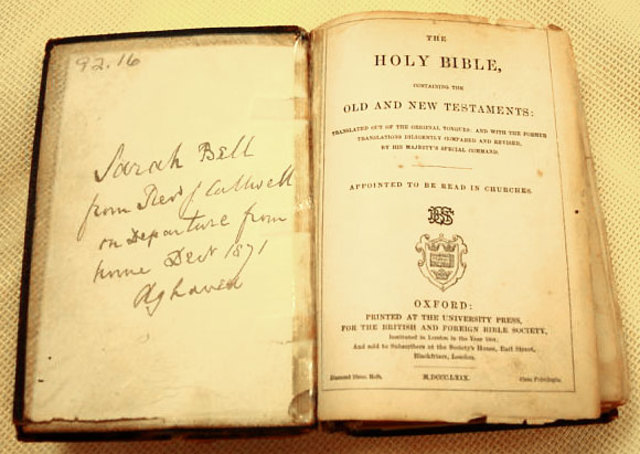 92.16
Sarah Bell
from Revd J Cuthwell
on Departure from
home Decr 1871
Aghaven
THE
HOLY BIBLE,
CONTAINING THE
OLD AND NEW TESTAMENTS:
TRANSLATED OUT OF THE ORIGINAL TONGUES: AND WITH THE FORMER
TRANSLATIONS DILIGENTLY COMPARED AND REVISED,
BY HIS MAJESTY'S SPECIAL COMMAND.
APPOINTED TO BE READ IN CHURCHES.
OXFORD:
PRINTED AT THE UNIVERSITY PRESS,
FOR THE BRITISH AND FOREIGN BIBLE SOCIETY,
Instituted in London in the Year 1804;
And sold to Subscribers at the Society's House, Earl Street,
Blackfriars, London.
Diamond 24mo. Refs. M.DCCC.LXIX. Cum Privilegio.